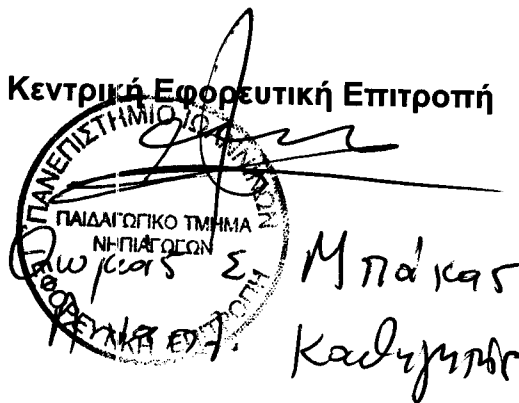 Κεντρική Εφορευτική Επιτροπή
ΠΑΝΕΠΙΣΤΗΜΙΟ ΙΩΑΝΝΙΝΩΝ
ΠΑΙΔΑΓΩΓΙΚΟ ΤΜΗΜΑ
ΝΗΠΙΑΓΩΓΩΝ
ΕΦΟΡΕΥΤΙΚΗ ΕΠΙΤΡΟΠΗ
Θωμάς Σ. Μπάκας
Καθηγητής